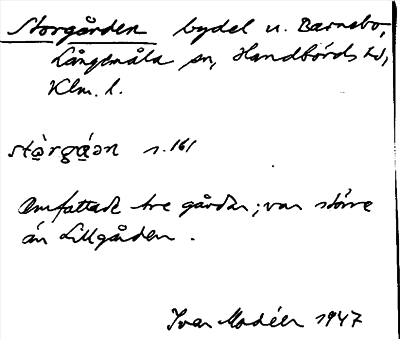 Storgården bydel u. Barnebo,
Långemåla sn, Handbörds hd,
Klm. l.
stòrgá̱ən s. 161
Omfattade tre gårdar; var större
än Lillgården.
Ivar Modéer 1947